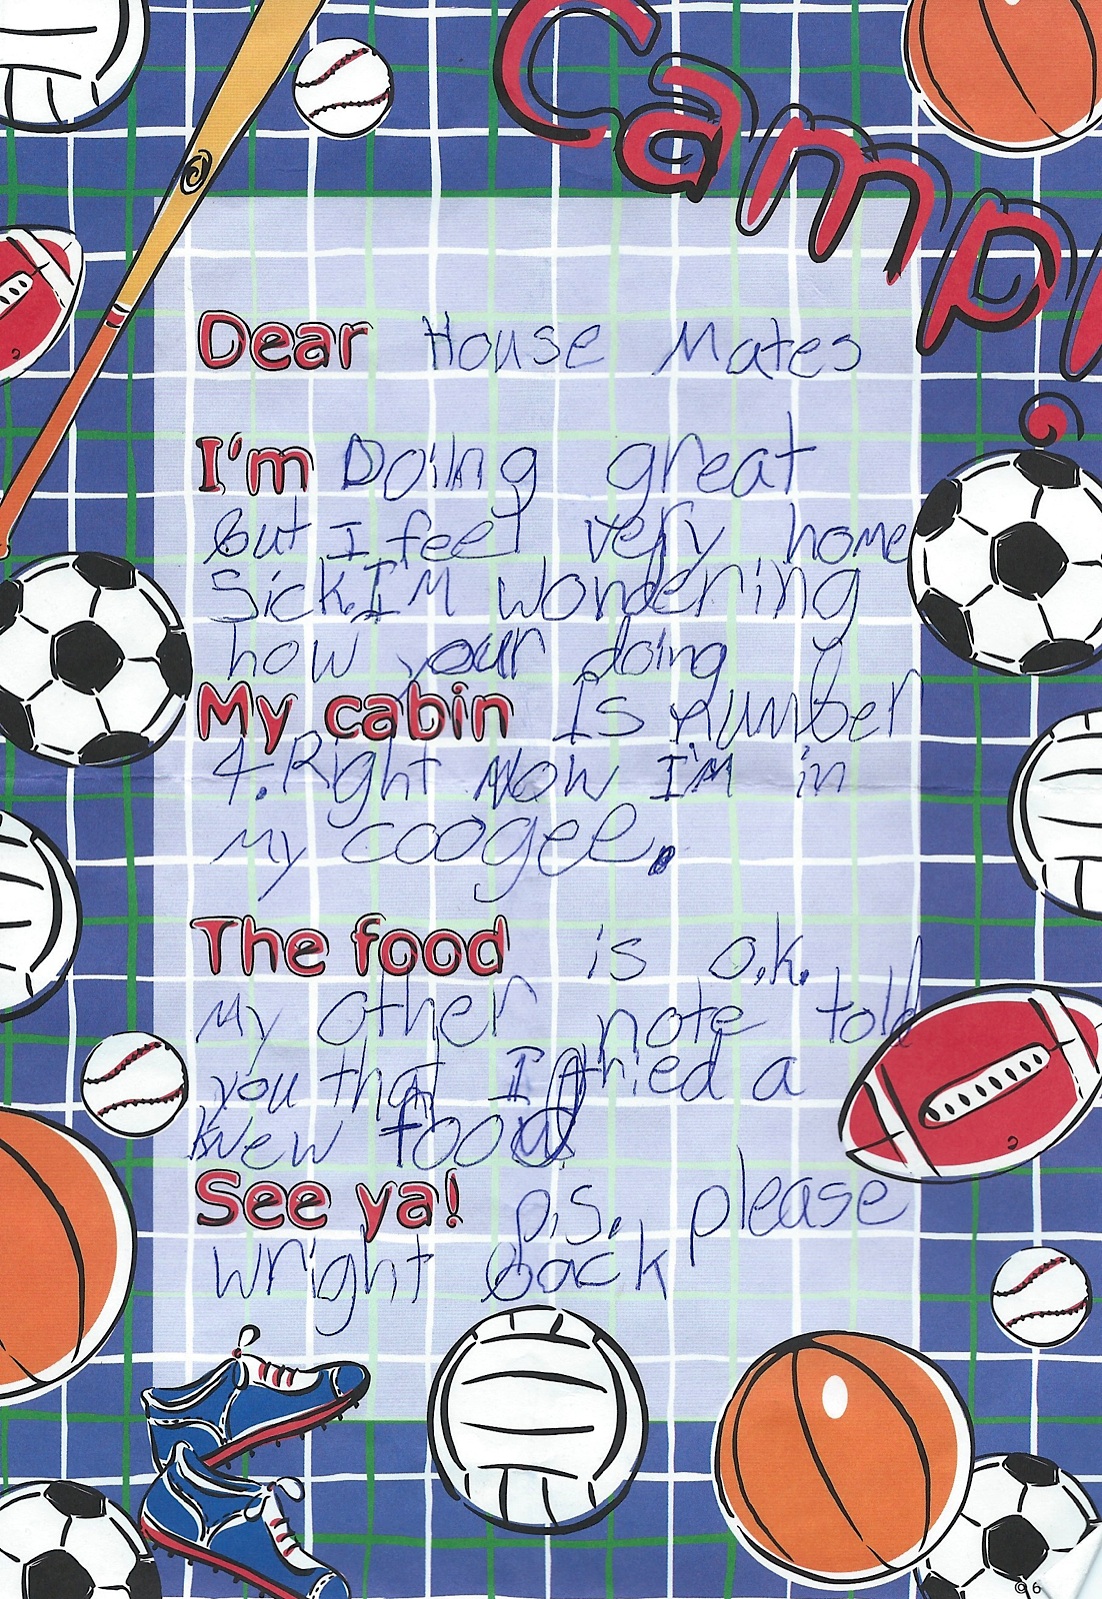 Camp!
Dear House Mates
I'm Doing great
But I feel very home
Sick. I'M wondering
how your doing
My cabin Is number
4. Right Now I'M in
My coogee.
The food is o.k.
My other note told
you that I tried a
knew food
See ya! p.s. please
wright back
© 6